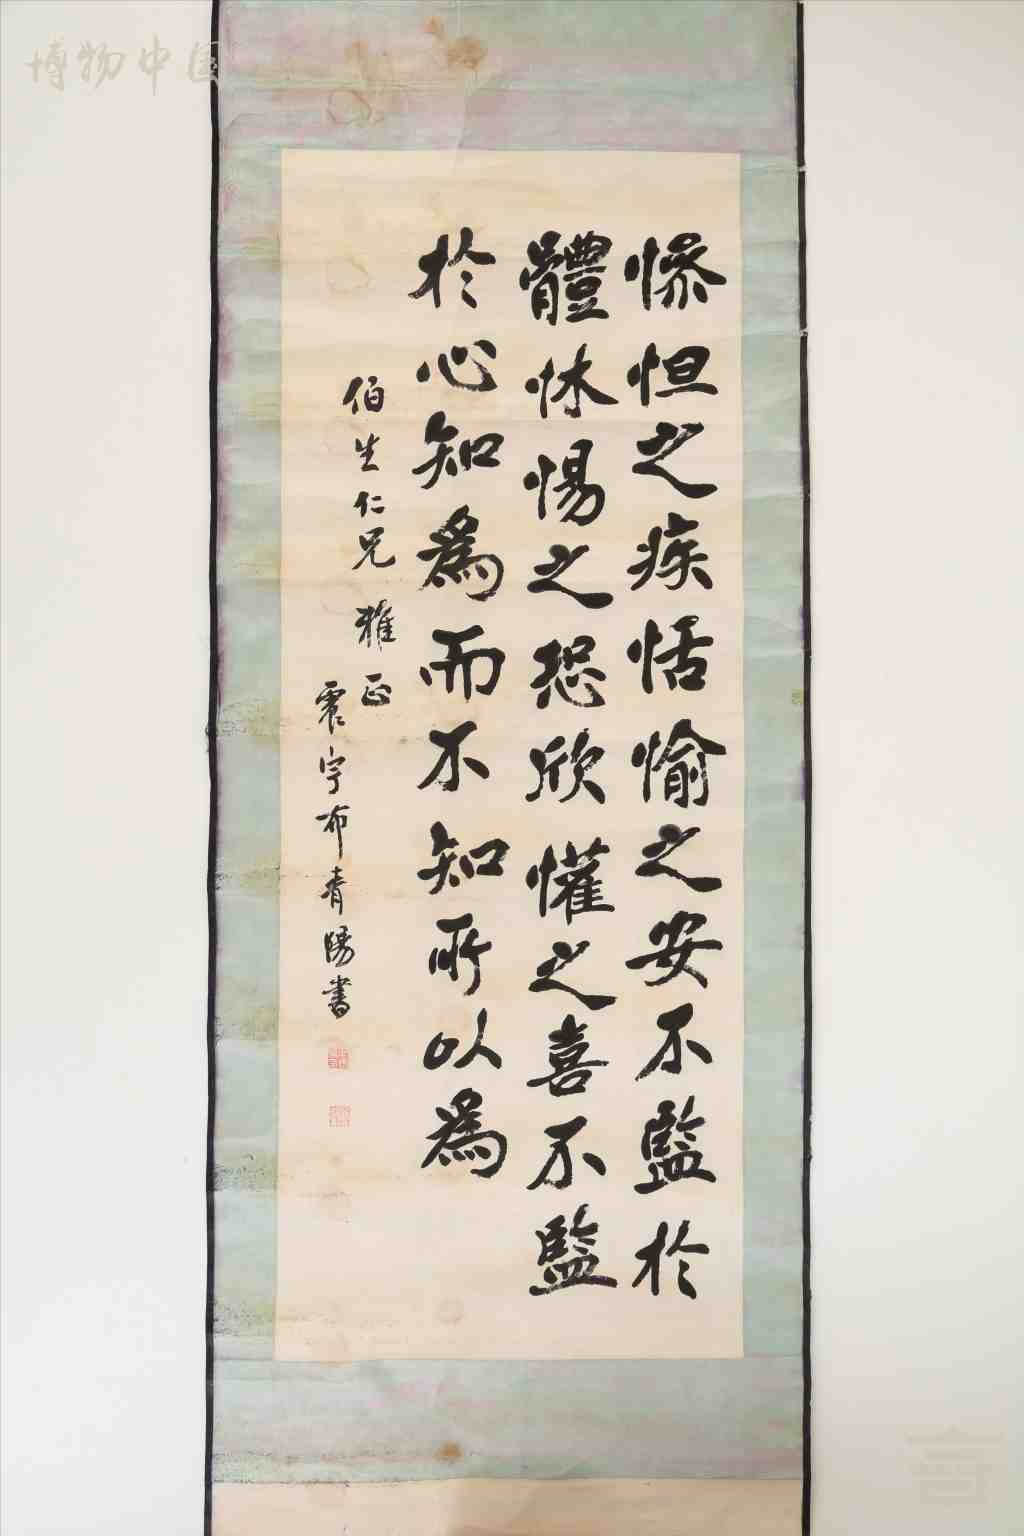 慘怛之疾恬愉之安不監於
體怵惕之恐欣懽之喜不監
於心知為而不知所以為
伯生仁兄雅正
震宇布青陽書
博物中国